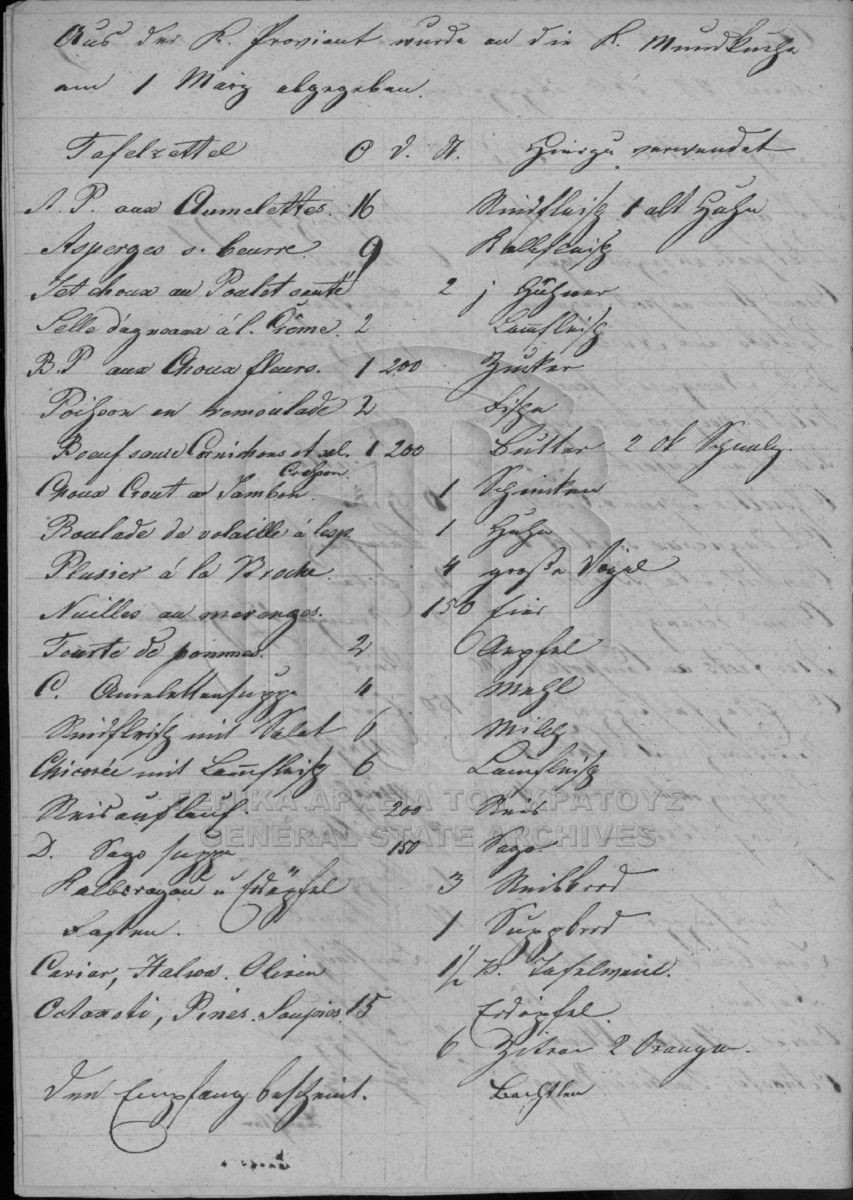 Aus der K. Proviant wurde an die K. Mundküche
am 1 März abgegeben.
Tafelzettel O d. St. Hierzu verwendet
A. P. aux Aumelettes. 16 Rindfleisch 1 alt Huhn
Asperges s. beurre. 9 Kalbfleisch
Jet choux au Poulet sauté 2 j Hühner
Selle d'agneaux á l. Crême. 2 Lamfleisch
B. P aux Choux fleurs. 1 200 Zucker
Poihson en remoulade 2 Fische
Boeuf sause Cornichons et sel. 1 200 Butter 2 ok Schmalz.
Choux Crout au Jambon. 1 Schinken
Boulade de volaille á lesp. 1 Huhn
Pluvier á la Broche. 4 große Vögel
Nuilles au merenges. 150 Eier
Tourte de pommes. 2 Aepfel
C. Aumelettensuppe 4 Mehl
Rindfleisch mit Salat 6 Milch
Chicorée mit Lam̄fleisch 6 Lamfleisch
Reisauflauf. 200 Reis
ΓΕΝΙΚΑ ΑΡΧΕΙΑ ΤΟΥ ΚΡΑΤΟΥΣ
GENERAL STATE ARCHIVES
D. Sago suppe 150 Sago
Kalbsragou u Erdäpfel 3 Reibbrod
Fasten. 1 Suppbrod
Caviar, Halwa. Oliven 1/2 B. Tafelwein.
Octaxoti, Pines. Soupies. 15 Erdöpfel.
6 Zitron 2 Orangen.
Den Empfang bescheint. Bechtlen